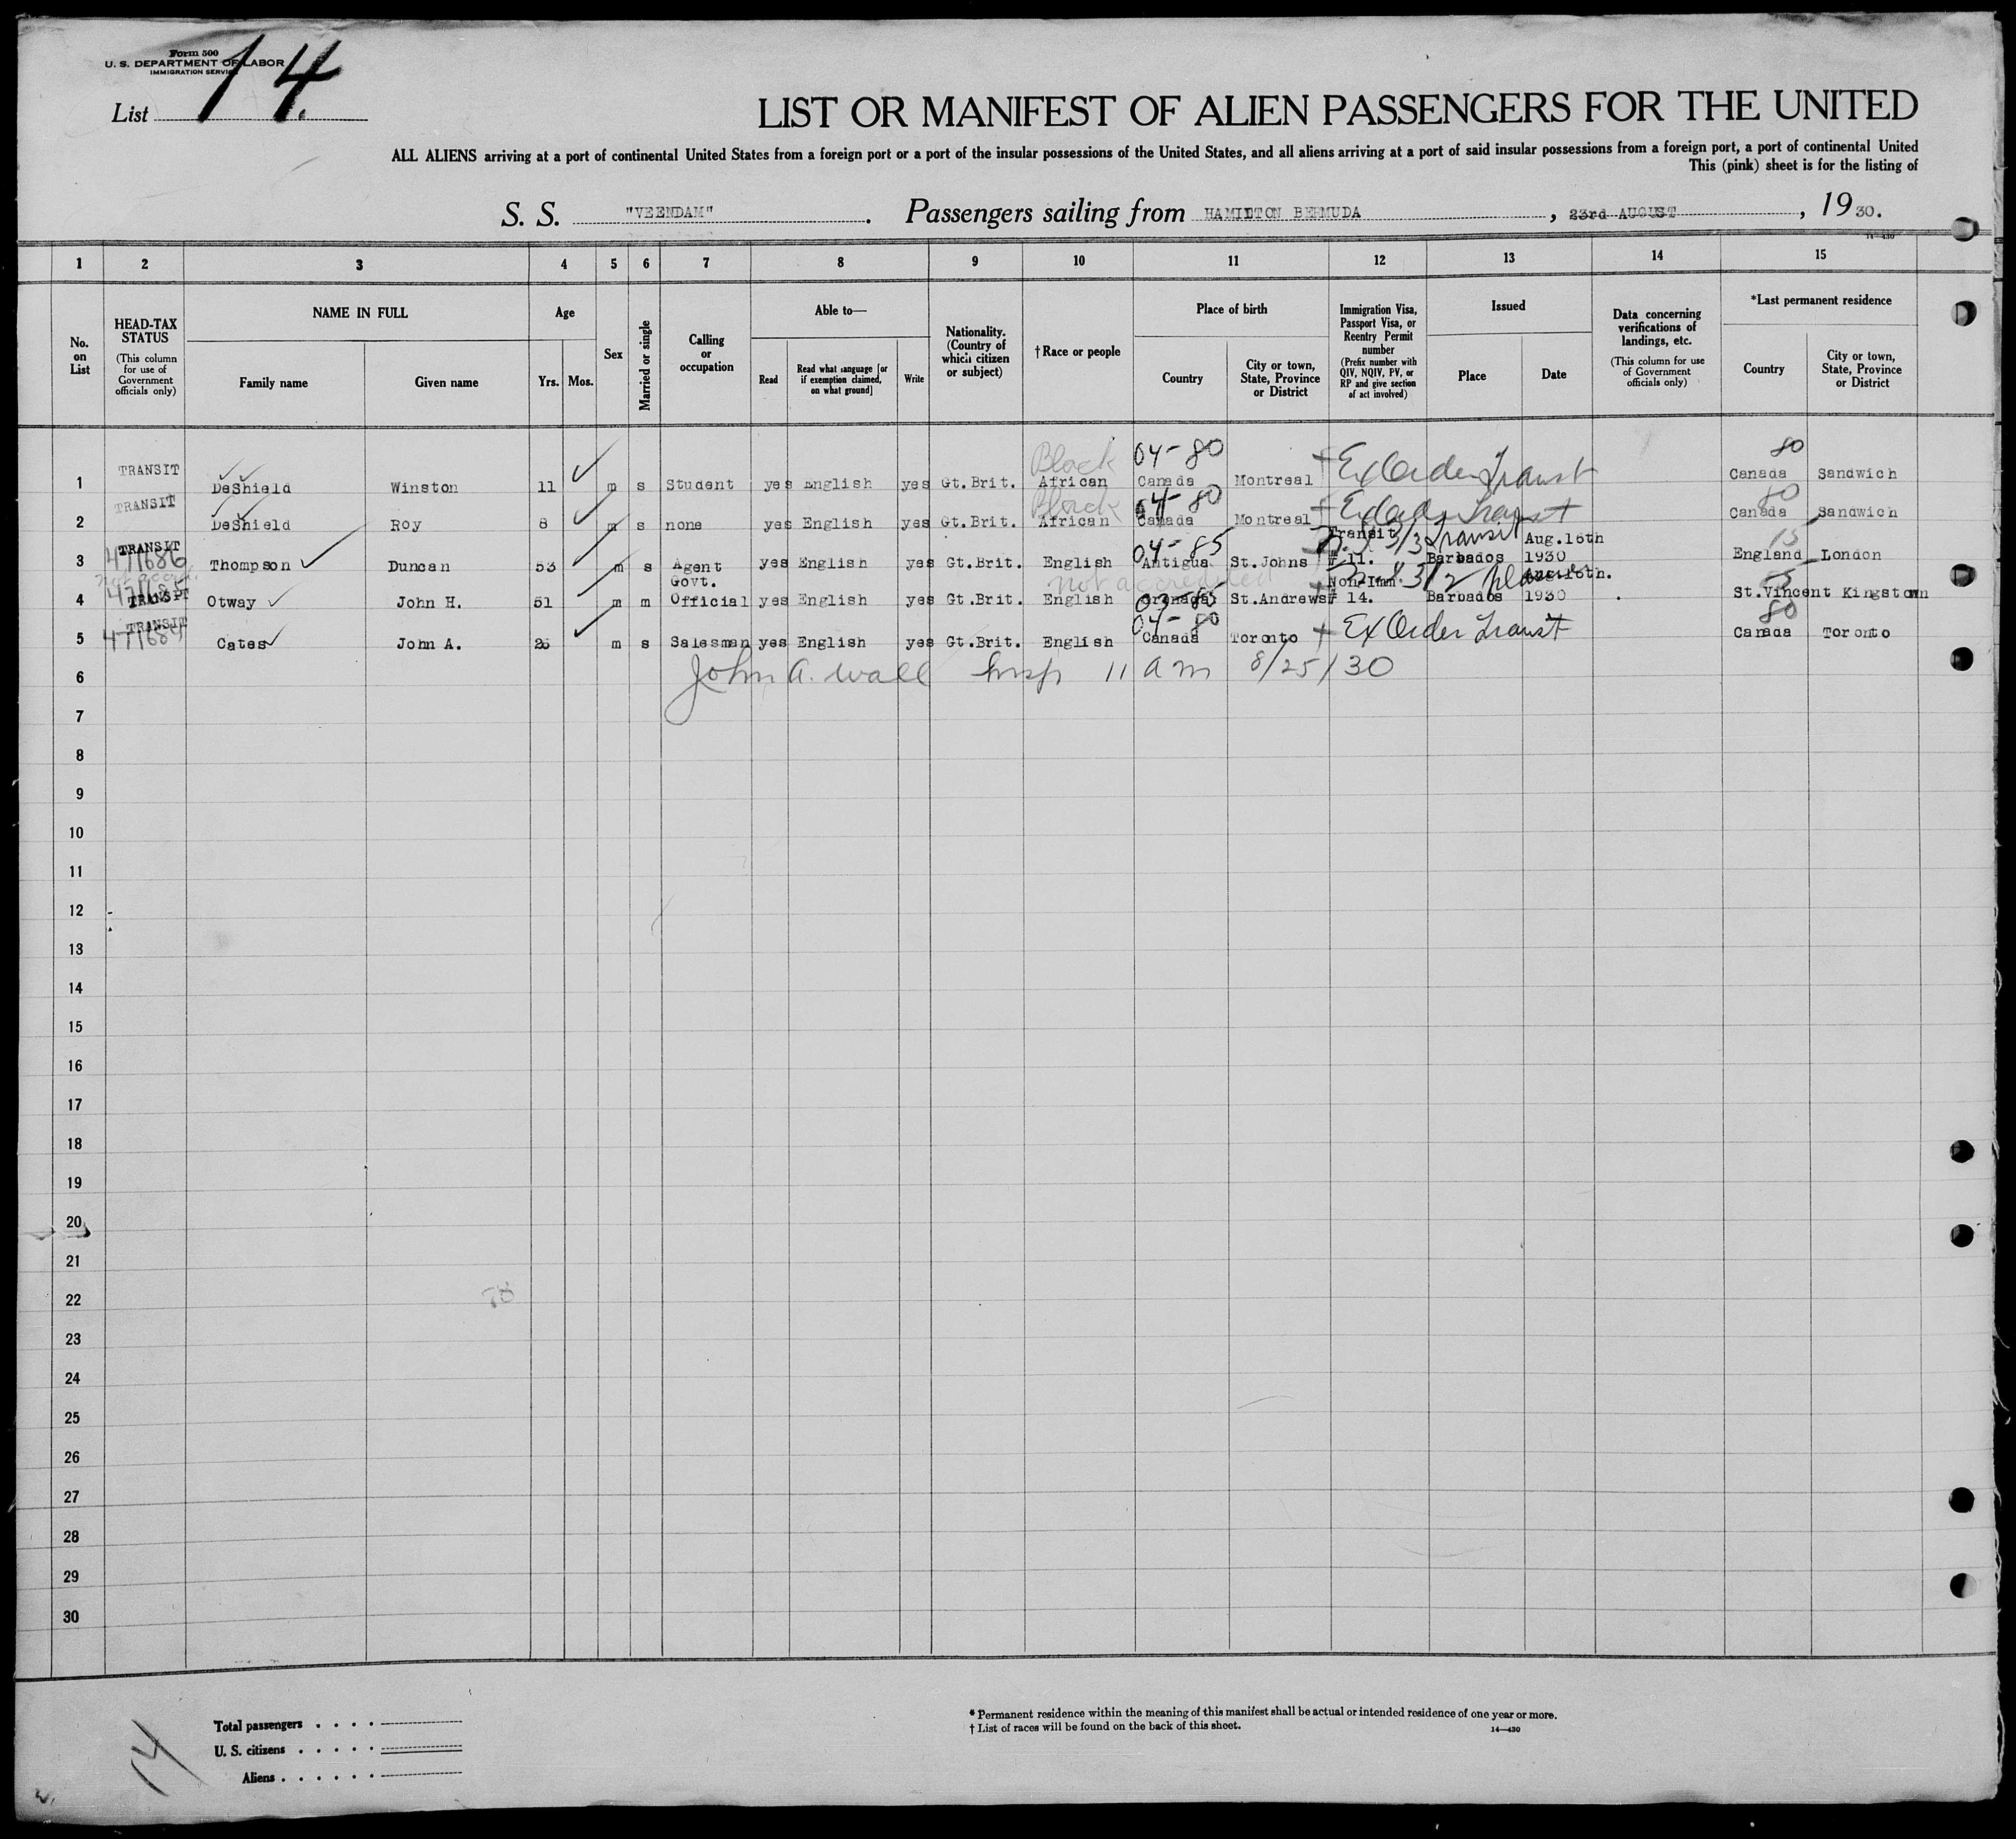 Form 500
U. S. DEPARTMENT OF LABOR
IMMIGRATION SERVICE
List 14.
LIST OR MANIFEST OF ALIEN PASSENGERS FOR THE UNITED
ALL ALIENS arriving at a port of continental United States from a foreign port or a port of the insular possessions of the United States, and all aliens arriving at a port of said insular possessions from a foreign port, a port of continental United
This (pink) sheet is for the listing of
S. S. "VEENDAM". Passengers sailing from HAMILTON BERMUDA, 23rd AUGUST, 1930.
14—430
1 2 3 4 5 6 7 8 9 10 11 12 13 14 15
No. on List
HEAD-TAX STATUS (This column for use of Government officials only)
NAME IN FULL
Family name
Given name
Age
Yrs. Mos.
Sex
Married or single
Calling or occupation
Able to—
Read
Read what language [or if exemption claimed, on what ground]
Write
Nationality. (Country of which citizen or subject)
† Race or people
Place of birth
Country
City or town, State, Province or District
Immigration Visa, Passport Visa, or Reentry Permit number (Prefix number with QIV, NQIV, PV, or RP and give section of act involved)
Issued
Place
Date
Data concerning verifications of landings, etc. (This column for use of Government officials only)
*Last permanent residence
Country
City or town, State, Province or District
Black 04-80 80
1 TRANSIT DeShield Winston 11 m s Student yes English yes Gt.Brit. African Canada Montreal Ex Order Transit Canada Sandwich
Black 04-80 80
2 TRANSIT DeShield Roy 8 m s none yes English yes Gt.Brit. African Canada Montreal Ex Order Transit Canada Sandwich
04-85 Transit 3/3 Transit Aug.16th 15
3 TRANSIT 471686 Thompson Duncan 53 m s Agent yes English yes Gt.Brit. English Antigua St.Johns # 11. Barbados 1930 England London
not accredited Non-Imm 3/2 Aug.16th. 85
4 TRANSIT Otway John H. 51 m m Govt. Official yes English yes Gt.Brit. English Grenada St.Andrews # 14. Barbados 1930 St.Vincent Kingstown
04-80 80
5 TRANSIT Cates John A. 26 m s Salesman yes English yes Gt.Brit. English Canada Toronto Ex Order Transit Canada Toronto
6 John A. Wall Insp 11 am 8/25/30
7
8
9
10
11
12
13
14
15
16
17
18
19
20
21
22
23
24
25
26
27
28
29
30
78
Total passengers
U. S. citizens
Aliens
14
* Permanent residence within the meaning of this manifest shall be actual or intended residence of one year or more.
† List of races will be found on the back of this sheet.
14—430